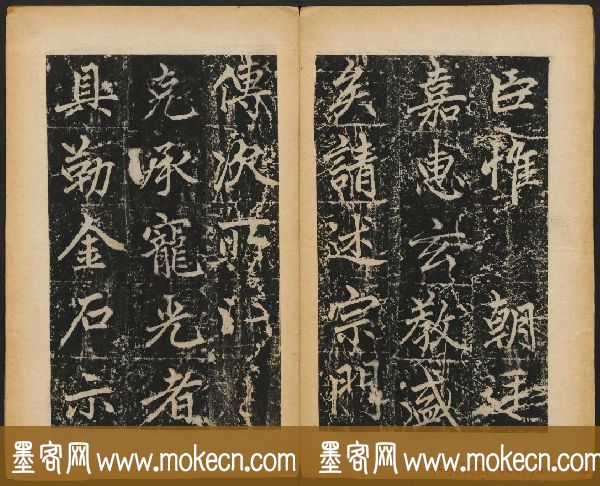 臣惟 朝廷
嘉惠玄教盛
矣請述宗門
傳次所以
克承寵光者
具勒金石示
墨客网 www.mokecn.com 墨客网 www.mokecn.com